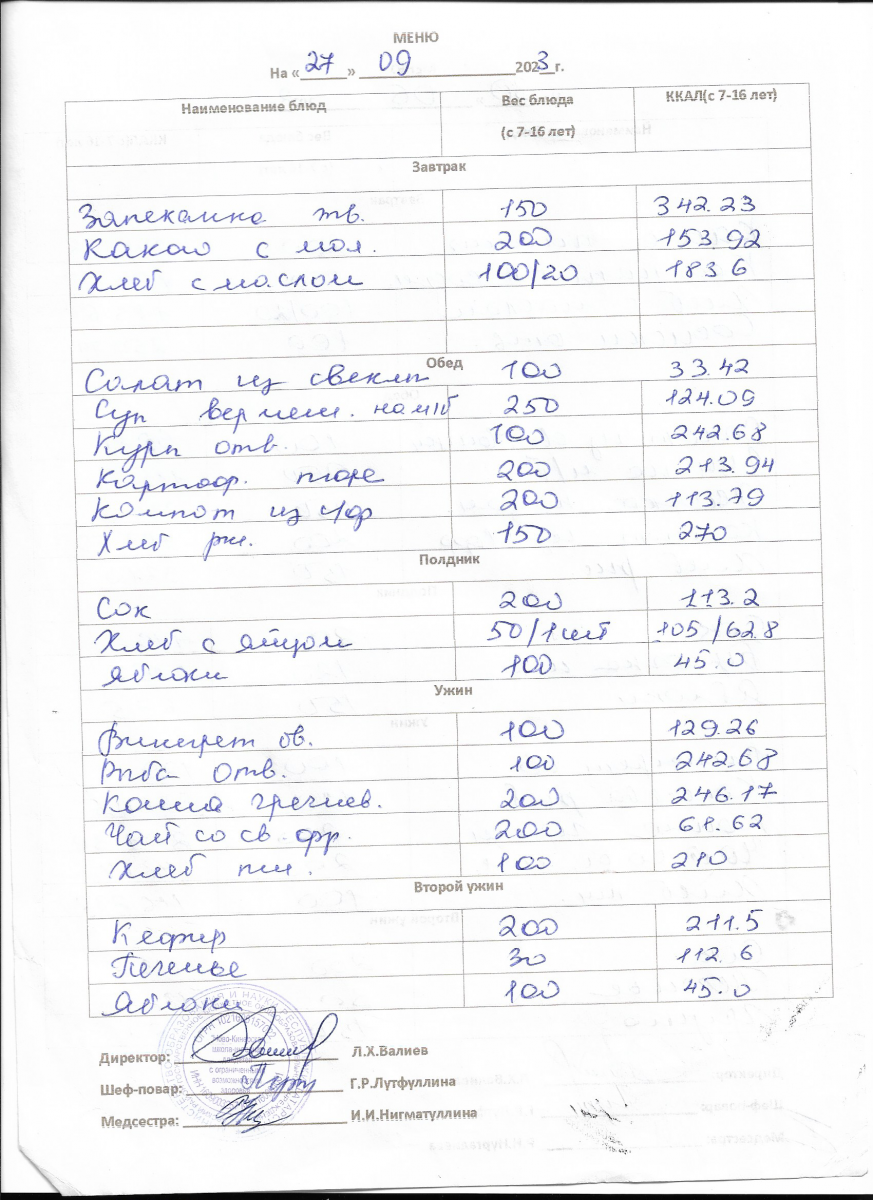 МЕНЮ
На «27» 09 2023 г.
Наименование блюд Вес блюда (с 7-16 лет) ККАЛ(с 7-16 лет)
Завтрак
Запеканка тв. 150 342.23
Какао с мол. 200 153.92
Хлеб с маслом 100/20 183 6
Обед
Салат из свеклы 100 33.42
Суп вермеш. 250 124.09
Куры отв. 100 242.68
Картоф. пюре 200 213.94
Компот из с/ф 200 113.79
Хлеб рж. 150 270
Полдник
Сок 200 113.2
Хлеб с яйцом 50/1шт 105/62.8
Яблоки 100 45.0
Ужин
Винегрет ов. 100 129.26
Рыба отв. 100 242.68
Каша гречнев. 200 246.17
Чай со св. фр. 200 61.62
Хлеб пш. 100 210
Второй ужин
Кефир 200 211.5
Печенье 30 112.6
Яблоки 100 45.0
Директор: Л.Х.Валиев
Шеф-повар: Г.Р.Лутфуллина
Медсестра: И.И.Нигматуллина